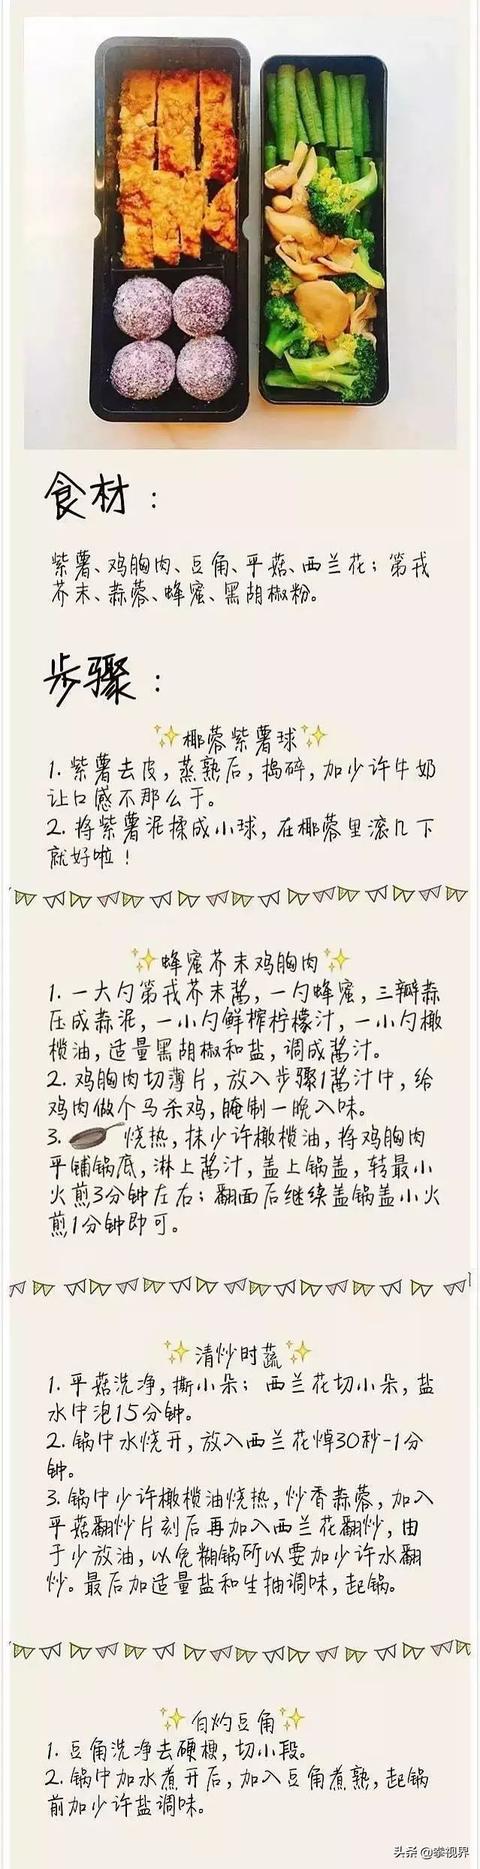 食材：
紫薯、鸡胸肉、豆角、平菇、西兰花；第戎
芥末、蒜蓉、蜂蜜、黑胡椒粉。
步骤：
椰蓉紫薯球
1. 紫薯去皮，蒸熟后，捣碎，加少许牛奶
让口感不那么干。
2. 将紫薯泥揉成小球，在椰蓉里滚几下
就好啦！
蜂蜜芥末鸡胸肉
1. 一大勺第戎芥末酱，一勺蜂蜜，三瓣蒜
压成蒜泥，一小勺鲜榨柠檬汁，一小勺橄
榄油，适量黑胡椒和盐，调成酱汁。
2. 鸡胸肉切薄片，放入步骤1酱汁中，给
鸡肉做个马杀鸡，腌制一晚入味。
3. 烧热，抹少许橄榄油，将鸡胸肉
平铺锅底，淋上酱汁，盖上锅盖，转最小
火煎3分钟左右；翻面后继续盖锅盖小火
煎1分钟即可。
清炒时蔬
1. 平菇洗净，撕小朵；西兰花切小朵，盐
水中泡15分钟。
2. 锅中水烧开，放入西兰花焯30秒-1分
钟。
3. 锅中少许橄榄油烧热，炒香蒜蓉，加入
平菇翻炒片刻后再加入西兰花翻炒，由
于少放油，以免糊锅所以要加少许水翻
炒。最后加适量盐和生抽调味，起锅。
白灼豆角
1. 豆角洗净去硬梗，切小段。
2. 锅中加水煮开后，加入豆角煮熟，起锅
前加少许盐调味。
头条 @拳视界